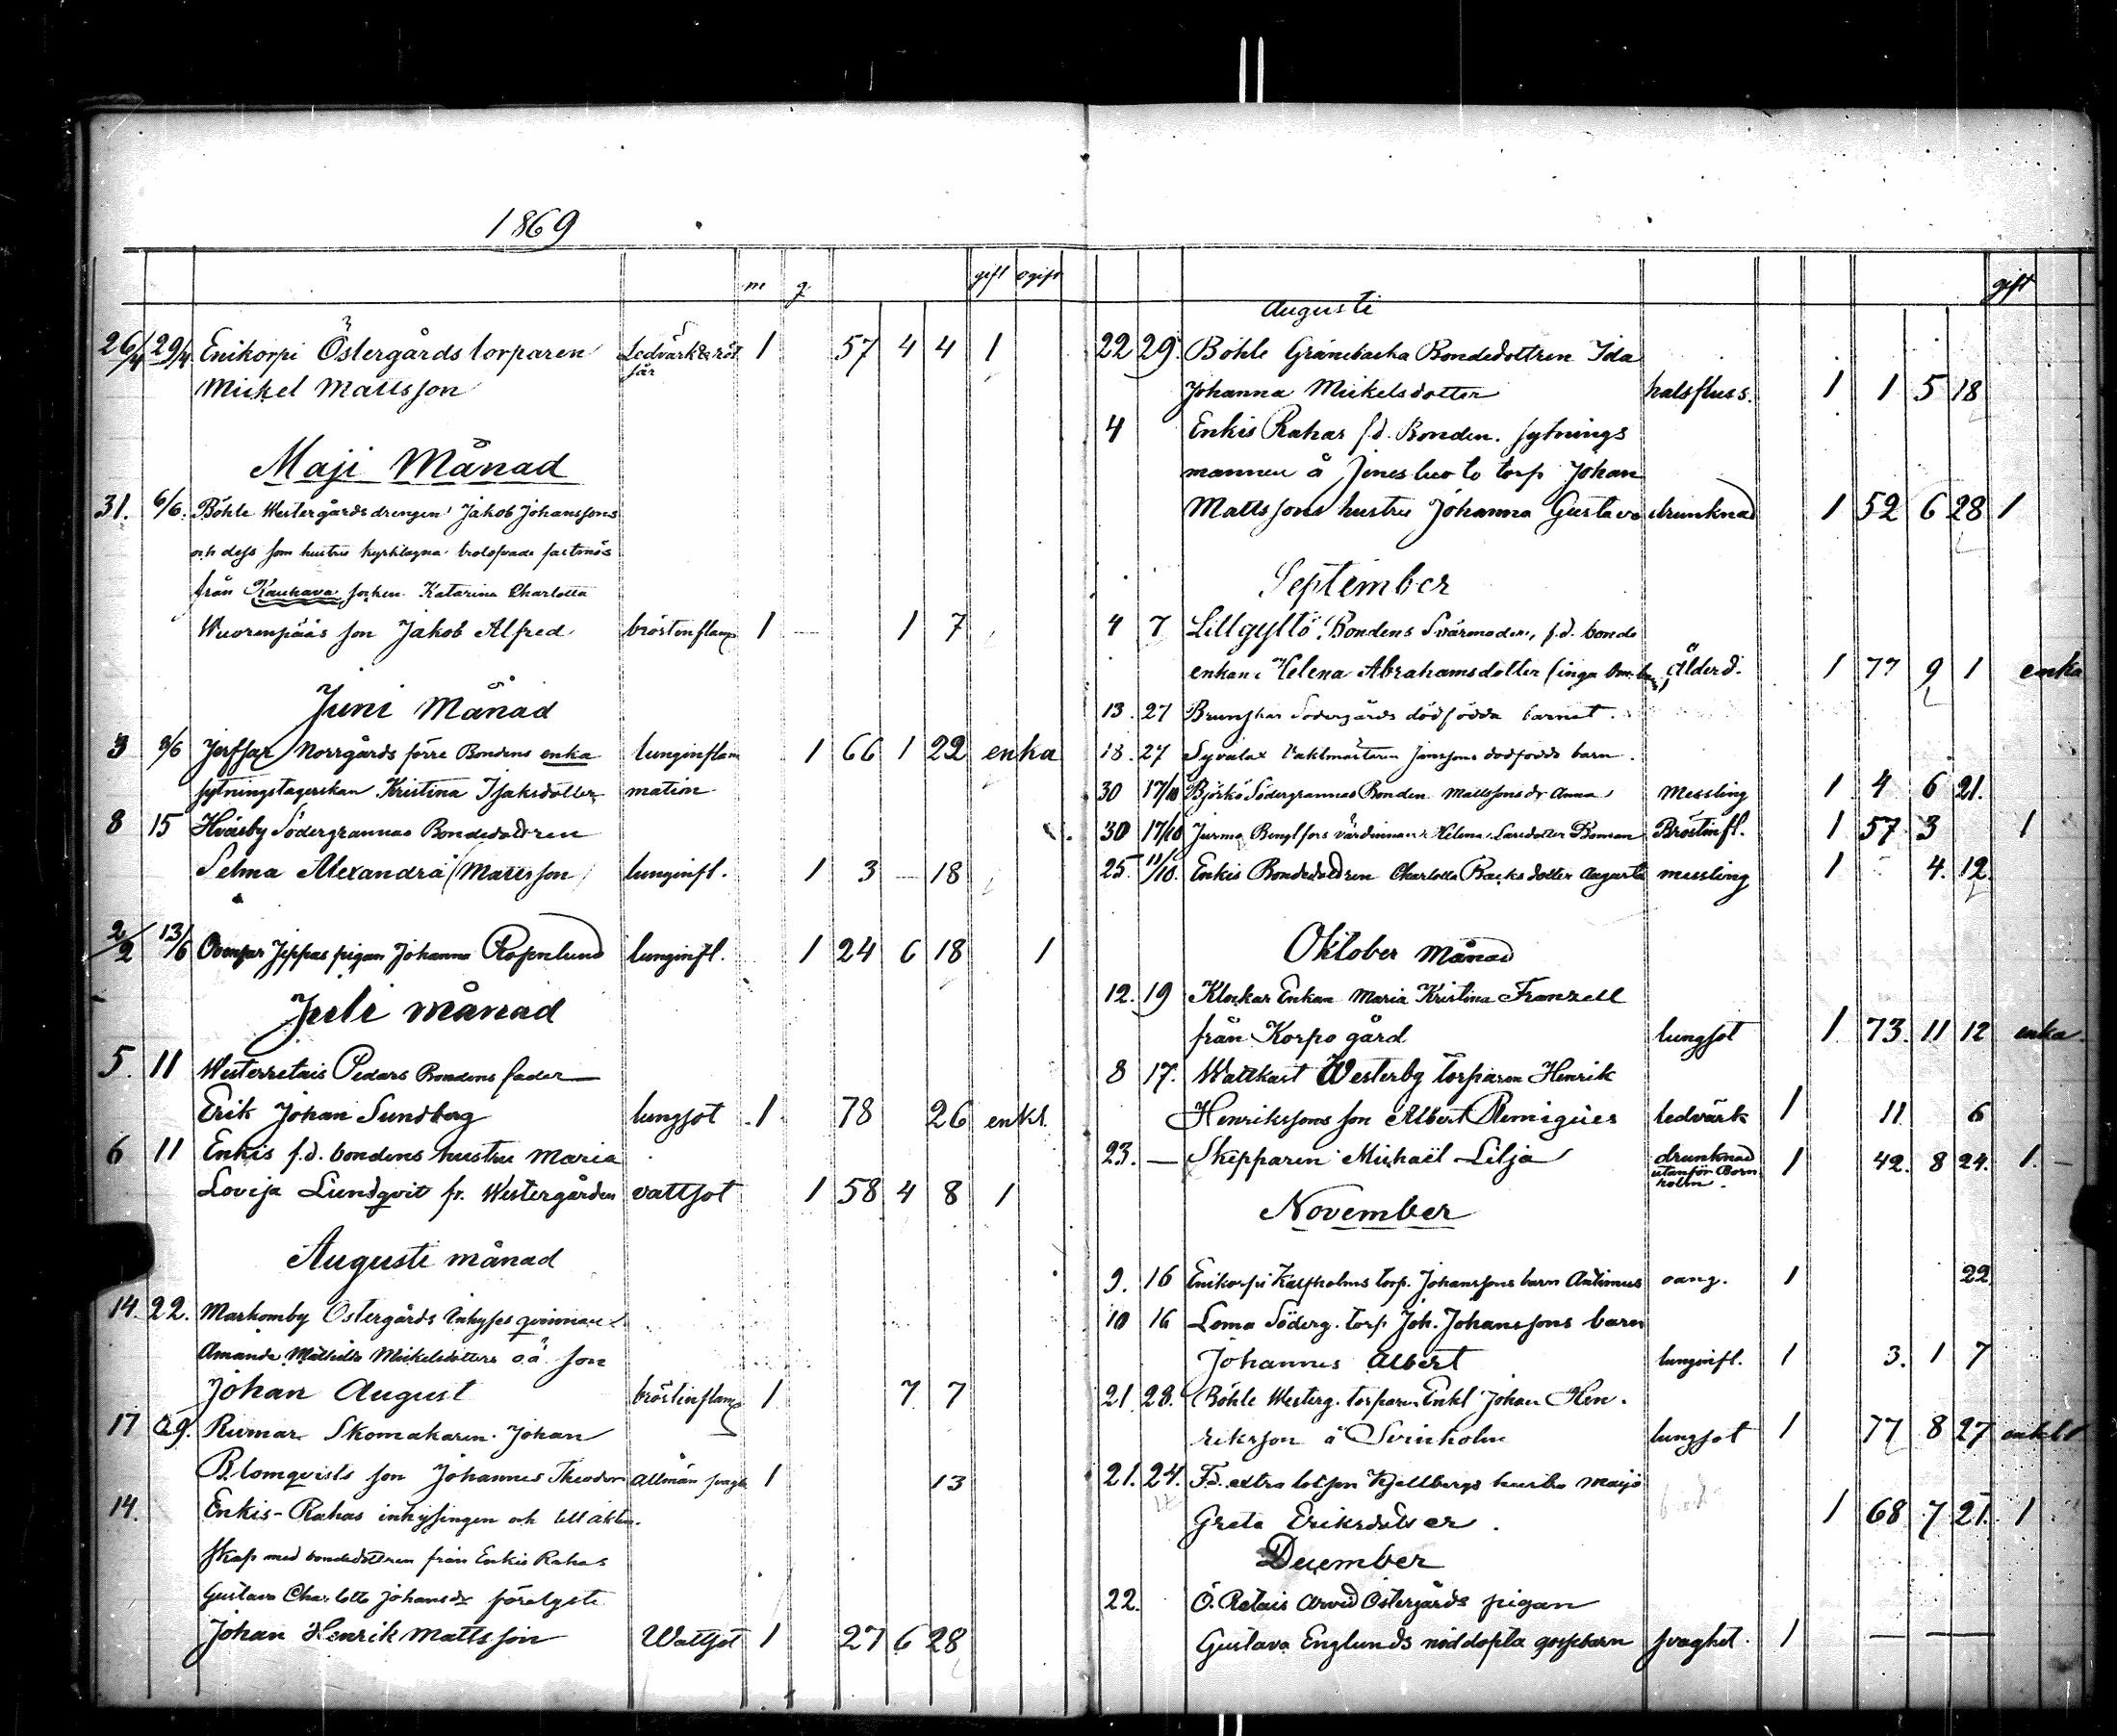 1869
m q gift ogift
26/4 29/4 Enikorpi Östergårds torparen Ledvärk & röt 1 57 4 4 1
sår
Mickel Mattsson
Maji Månad
31. 6/6. Böhle Westergårds drengen Jakob Johanssons
och dess som hustru kyrktagna trolofvade fästmös
från Kauhava socken Katarina Charlotta
Wuorenpääs son Jakob Alfred bröstinflam 1 1 7
Juni Månad
3 9/6 Norrgårds förre Bondens enka lunginflam 1 66 1 22 enka
sytningstagerskan Kristina Isaksdotter mation
8 15 Hväsby Södergrannas Bondedottren
Selma Alexandra (Mattsson) lunginfl. 1 3 — 18
2/2 13/6 Jeppas pigan Johanna Rosenlund lunginfl. 1 24 6 18 1
Juli månad
5. 11 Westerretais Pedars Bondens fader
Erik Johan Sundberg lungsot 1 78 26 enkl.
6 11 Enkis f.d. bondens hustru Maria
Lovisa Lundqvit fr. Westergården vattsot 1 58 4 8 1
Augusti månad
14. 22. Markomby Östergårds Inhyses qvinnan
Amanda Mathilda Mickelsdotters o.ä. son
Johan August bröstinflam 1 7 7
17 29. Rumar Skomakaren Johan
Blomqvists son Johannes Theodor Allmän svagh 1 13
14. Enkis-Rahas inhysingen och till äkten.
skap med bondedottren från Enkis Rahas
Gustava Charlotta Johansdr förelyste
Johan Henrik Mattsson Wattsot 1 27 6 28
gift
Augusti
22 29 Böhle Grännbacka Bondedottren Ida
Johanna Mickelsdotter halsfluss. 1 1 5 18
4 Enkis Rahas f.d. Bonden. sytnings
mannen å torp Johan
Mattssons hustru Johanna Gustava drunknad 1 52 6 28 1
September
4 7 Lillgyltö, Bondens Svärmoder, f.d. bonde
enkan Helena Abrahamsdotter (inga Ålderd. 1 77 9 1 enka
13. 27 Brunskär Södergårds dödfödda barnet.
18. 27 Syvalax Vaktmästaren Janssons dödfödda barn.
30 17/10 Björkö Södergrannas Bonden Mattssons dr Anna Messling 1 4 6 21.
30 17/10 Jurmo Bengtfors värdinnan Helena Larsdotter Boman Bröstinfl. 1 57 3 1
25. 11/10. Enkis Bondedottren Charlotta Backsdotter Augusta messling 1 4. 12.
Oktober Månad
12. 19 Klockar Enkan Maria Kristina Franzell
från Korpo gård lungsot 1 73. 11 12 enka.
8 17. Wattkast Westerby torparen Henrik
Henrikssons son Albert Remigius ledvärk 1 11 6
23. — Skepparen Michaël Lilja drunknad 1 42. 8 24. 1. —
utanför Born
holm.
November
9. 16 Enikorpi Kalfholms torp. Johanssons barn Antimus oang. 1 22
10 16 Loma Söderg. torp Joh. Johanssons barn
Johannes Albert lunginfl. 1 3. 1 7
21 28. Böhle Westerg. torparen Enkl Johan Hen.
riksson å Svinholm lungsot 1 77 8 27 enkl
21. 24. F.d. extra lotsen Kjellbergs hustru Maija
Greta Eriksdotter. 1 68 7 21. 1
December
22. Ö. Retais Arvid Östergårds pigan
Gustava Englunds nöddöpta gossebarn svaghet. 1 — —